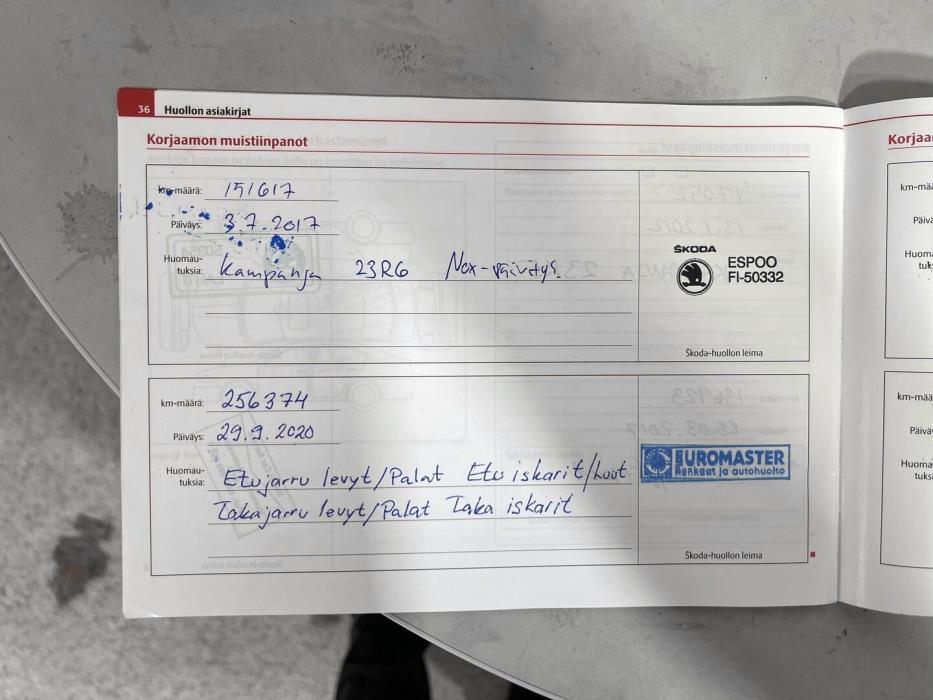 36 Huollon asiakirjat
Korjaamon muistiinpanot
km-määrä: 151617
Päiväys: 3.7.2017
Huomau-
tuksia: Kampanja 23R6 Nox-päivitys
ŠKODA
ESPOO
FI-50332
Škoda-huollon leima
km-määrä: 256374
Päiväys: 29.9.2020
Huomau-
tuksia: Etujarru levyt/Palat Etu iskarit/Luot
Takajarru levyt/Palat Taka iskarit
EUROMASTER
Renkaat ja autohuolto
Škoda-huollon leima
Korjaa
km-mää
Päivä
Huom
tuk
km-mää
Päivä
Huoma
tuksi